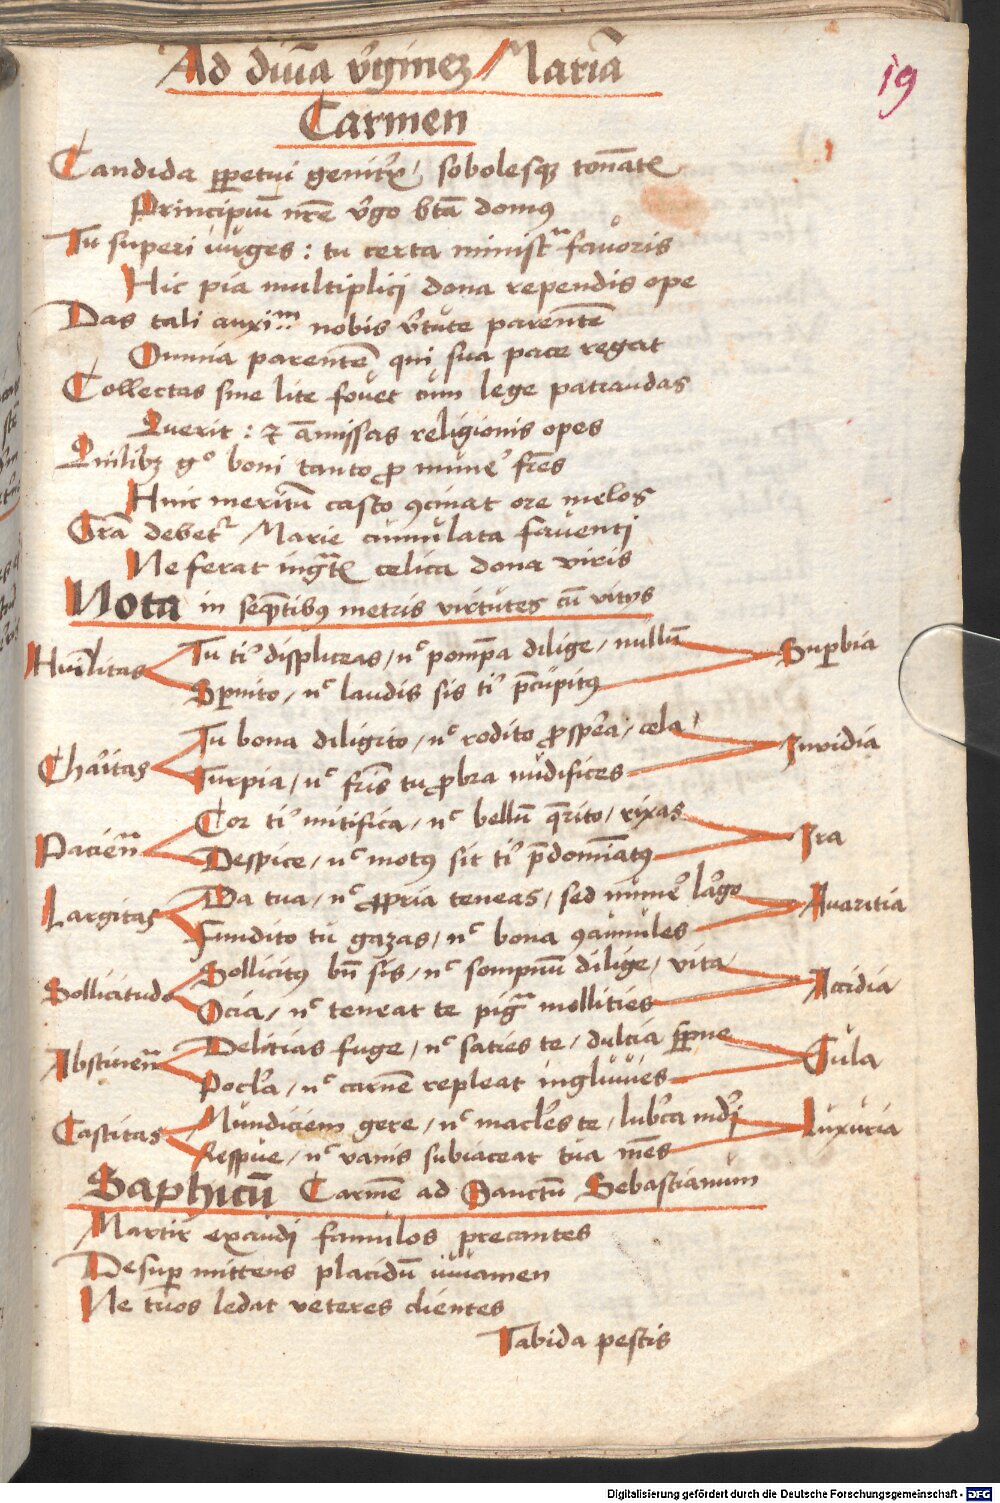 Ad diuā v̄ginez Mariā
19
Carmen
Candida ꝑpetui genitrx sobolesqꝫ tonātꝭ
Principiū nr̄e v̄go btā domꝰ
Tu superi iurges : tu certa ministra fauoris
Hic pia multiplicj dona rependis ope
Das tali auxim nobis v̄tute parentē
Omnia parentē quj sua pace regat
Collectas sine lite fouet cum lege patrandas
Querit : ⁊ amissas religionis opes
Quilibꝫ gͦ boni tanto ꝓ mune fr̄es
Huic meritū casto ꝯcinat ore melos
Grā debetur Marie cumulata fauentj
Ne ferat ingᵃtꝭ celica dona viris
Nota in seqͤntibꝰ metris virtutes cū vitijs
Humilitas Tu ti displiceas / nᶜ pompā dilige / nullū Supbia
Spnito / nᶜ laudis sis ti p̄cupitꝰ
Charitas Tu bona diligito / nᶜ rodito ꝓspera / cela Inuidia
Turpia / nᶜ fr̄is tu ꝓbra nudifices
Pacien̄ Cor ti mitifica / nᶜ bellū qrito / rixas Ira
Despice / nᶜ motꝰ sit ti p̄domīatꝰ
Largitas Da tua / nᶜ ꝓpria teneas / sed mune largo Auaritia
Fundito tu gazas / nᶜ bona ꝯcumules
Sollicitudo Sollicitꝰ bn̄ sis / nᶜ sompnū dilige / vita Accidia
Ocia / nᶜ teneat te pigᵃ mollities
Abstinen̄ Delitias fuge / nᶜ saties te / dulcia sperne Gula
Pocla / nᶜ carnē repleat ingluuies
Castitas Mundiciem gere / nᶜ macles te / lubrca mdj Luxuria
Respue / nᶜ vanis subiaceat tua mēs
Saphicū Carmē ad Sanctū Sebastianum
Martir exaudj famulos precantes
Desup mittens placidū iuuamen
Ne tuos ledat veteres clientes
Tabida pestis
Digitalisierung gefördert durch die Deutsche Forschungsgemeinschaft - DFG